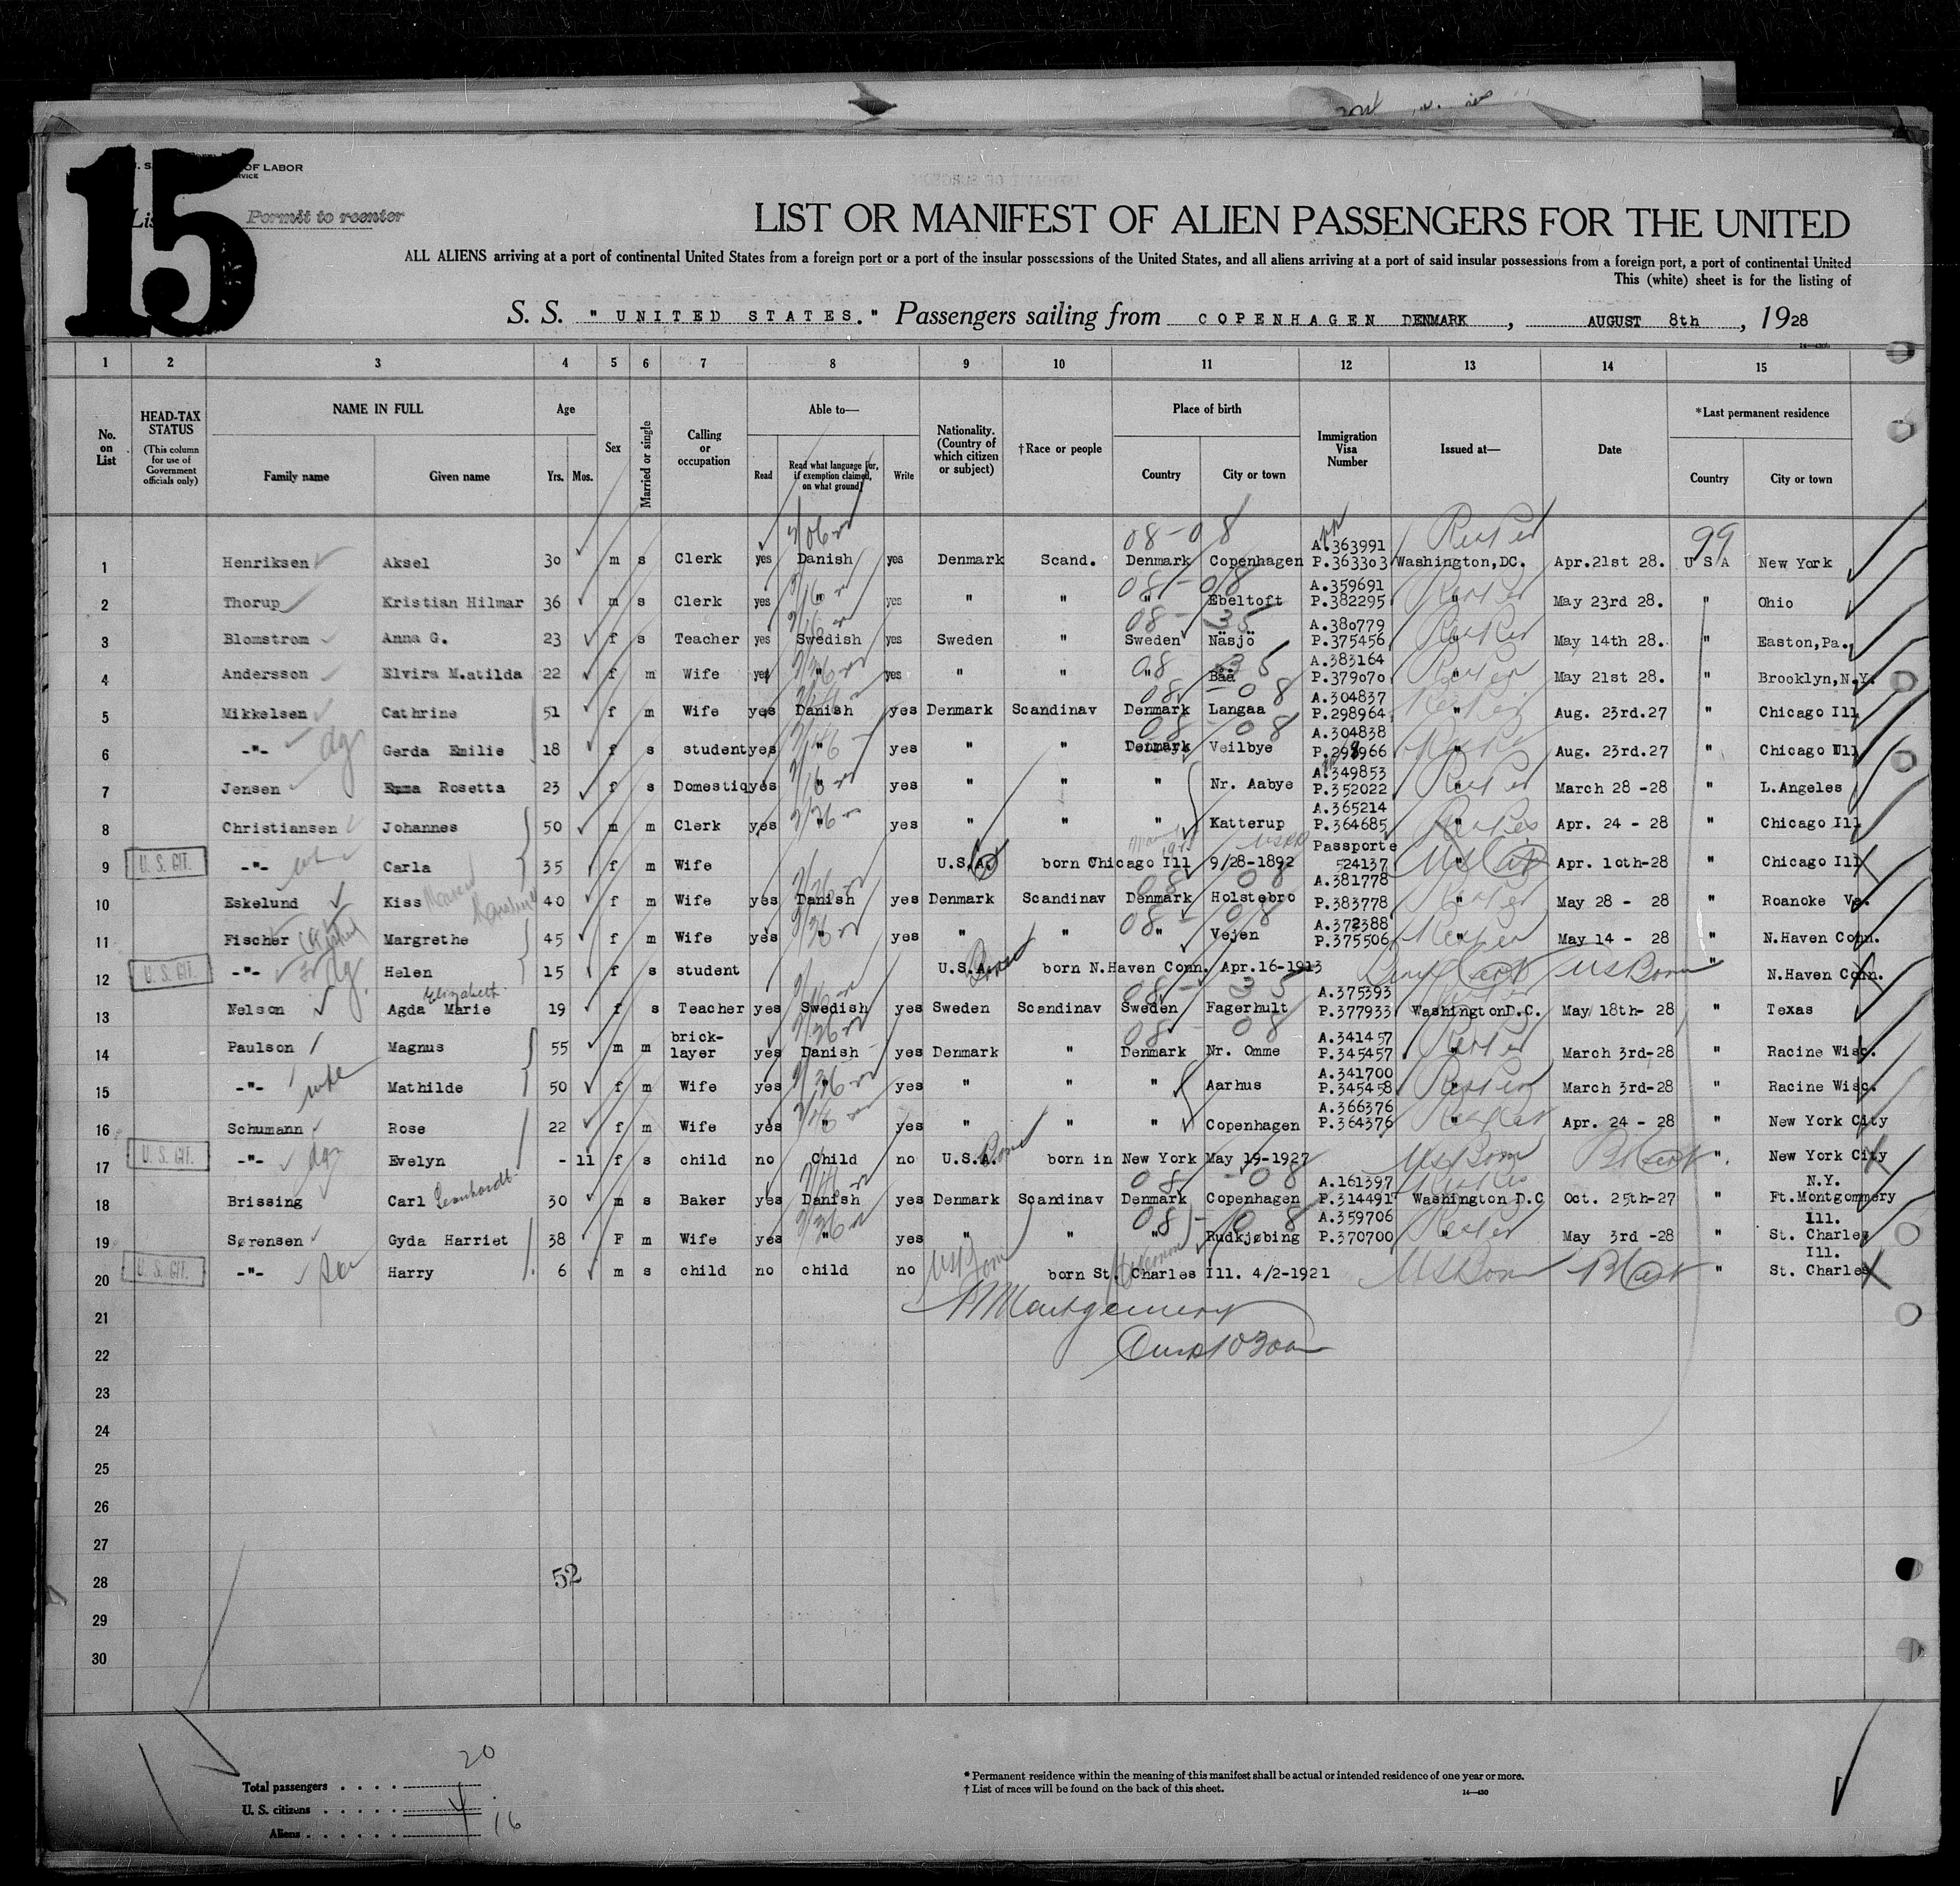 15
OF LABOR
Permit to reenter
LIST OR MANIFEST OF ALIEN PASSENGERS FOR THE UNITED
ALL ALIENS arriving at a port of continental United States from a foreign port or a port of the insular possessions of the United States, and all aliens arriving at a port of said insular possessions from a foreign port, a port of continental United
This (white) sheet is for the listing of
S. S. " UNITED STATES." Passengers sailing from COPENHAGEN DENMARK , AUGUST 8th , 1928
1 2 3 4 5 6 7 8 9 10 11 12 13 14 15
No. on List
HEAD-TAX STATUS (This column for use of Government officials only)
NAME IN FULL
Family name Given name
Age
Yrs. Mos.
Sex
Married or single
Calling or occupation
Able to—
Read Read what language [or, if exemption claimed, on what ground] Write
Nationality. (Country of which citizen or subject)
†Race or people
Place of birth
Country City or town
Immigration Visa Number
Issued at—
Date
*Last permanent residence
Country City or town
1 Henriksen Aksel 30 m s Clerk yes Danish yes Denmark Scand. Denmark Copenhagen A.363991 P.363303 Washington,DC. Apr.21st 28. U S A New York
2 Thorup Kristian Hilmar 36 m s Clerk yes " yes " " " Ebeltoft A.359691 P.382295 " May 23rd 28. " Ohio
3 Blomstrom Anna G. 23 f s Teacher yes Swedish yes Sweden " Sweden Näsjö A.380779 P.375456 " May 14th 28. " Easton,Pa.
4 Andersson Elvira M.atilda 22 f m Wife yes " yes " " " Båå A.383164 P.379070 " May 21st 28. " Brooklyn,N.Y.
5 Mikkelsen Cathrine 51 f m Wife yes Danish yes Denmark Scandinav Denmark Langaa A.304837 P.298964 " Aug. 23rd.27 " Chicago Ill
6 -"- dgr Gerda Emilie 18 f s student yes " yes " " Denmark Veilbye A.304838 P.298966 " Aug. 23rd.27 " Chicago Ill
7 Jensen Emma Rosetta 23 f s Domestiq yes " yes " " " Nr. Aabye A.349853 P.352022 " March 28 -28 " L.Angeles
8 Christiansen Johannes 50 m m Clerk yes " yes " " " Katterup A.365214 P.364685 " Apr. 24 - 28 " Chicago Ill
9 U. S. CIT. -"- Carla 35 f m Wife U.S.A. born Chicago Ill 9/28-1892 Passporte 524137 Apr. 10th-28 " Chicago Ill
10 Eskelund Kiss 40 f m Wife yes Danish yes Denmark Scandinav Denmark Holstebro A.381778 P.383778 " May 28 - 28 " Roanoke Va.
11 Fischer Margrethe 45 f m Wife yes " yes " " " Vejen A.372388 P.375506 May 14 - 28 " N.Haven Conn.
12 U. S. CIT. -"- dgr Helen 15 f s student U.S.A. born N.Haven Conn. Apr.16-1913 US Born " N.Haven Conn.
13 Nelson Agda Marie Elizabeth 19 f s Teacher yes Swedish yes Sweden Scandinav Sweden Fagerhult A.375393 P.377933 WashingtonD.C. May 18th- 28 " Texas
14 Paulson Magnus 55 m m brick-layer yes Danish yes Denmark " Denmark Nr. Omme A.341457 P.345457 " March 3rd-28 " Racine Wisc.
15 -"- wife Mathilde 50 f m Wife yes " yes " " " Aarhus A.341700 P.345458 " March 3rd-28 " Racine Wisc.
16 Schumann Rose 22 f m Wife yes " yes " " " Copenhagen A.366376 P.364376 " Apr. 24 - 28 " New York City
17 U. S. CIT. -"- dgr Evelyn - 11 f s child no Child no U.S.A. Born born in New York May 19-1927 US Born " New York City
18 Brissing Carl Leonhardt 30 m s Baker yes Danish yes Denmark Scandinav Denmark Copenhagen A.161397 P.314491 Washington D.C Oct. 25th-27 " N.Y. Ft.Montgommery
19 Sørensen Gyda Harriet 38 F m Wife yes " yes " " " Rudkjøbing A.359706 P.370700 " May 3rd -28 " Ill. St. Charles
20 U. S. CIT. -"- son Harry 6 m s child no child no US Born born St. Charles Ill. 4/2-1921 US Born " Ill. St. Charles
21
22
23
24
25
26
27
28 52
29
30
Total passengers . . . . 20
U. S. citizens . . . . . 4
Aliens . . . . . . 16
* Permanent residence within the meaning of this manifest shall be actual or intended residence of one year or more.
† List of races will be found on the back of this sheet.
14—430